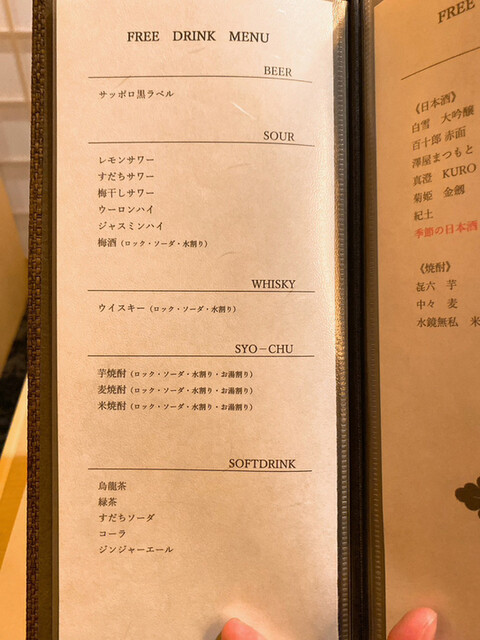 FREE DRINK MENU
BEER
サッポロ黒ラベル
SOUR
レモンサワー
すだちサワー
梅干しサワー
ウーロンハイ
ジャスミンハイ
梅酒（ロック・ソーダ・水割り）
WHISKY
ウイスキー（ロック・ソーダ・水割り）
SYO－CHU
芋焼酎（ロック・ソーダ・水割り・お湯割り）
麦焼酎（ロック・ソーダ・水割り・お湯割り）
米焼酎（ロック・ソーダ・水割り・お湯割り）
SOFTDRINK
烏龍茶
緑茶
すだちソーダ
コーラ
ジンジャーエール
FREE
《日本酒》
白雪 大吟醸
百十郎 赤面
澤屋まつもと
真澄 KURO
菊姫 金劔
紀土
季節の日本酒
《焼酎》
㐂六 芋
中々 麦
水鏡無私 米